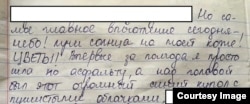 Но са-
мое главное впечатление сегодня -
небо! лучи солнца на моей коже!
ЦВЕТЫ!! Впервые за полгода я просто
шла по асфальту, а над головой
был этот огромный синий купол с
пушистыми облачками.
Courtesy Image